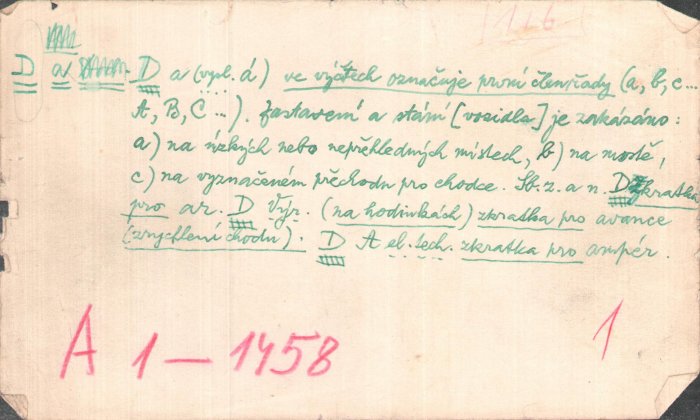 116
D a D a (vysl. á) ve výčtech označuje první člen řady (a, b, c...
A, B, C ...). Zastavení a stání [vozidla] je zakázáno:
a) na úzkých nebo nepřehledných místech, b) na mostě,
c) na vyznačeném přechodu pro chodce. Sb. z. a n. D zkratka
pro ar. D Výr. (na hodinkách) zkratka pro avance
(zrychlení chodu). D A el. tech. zkratka pro ampér.
A 1 — 1458
1